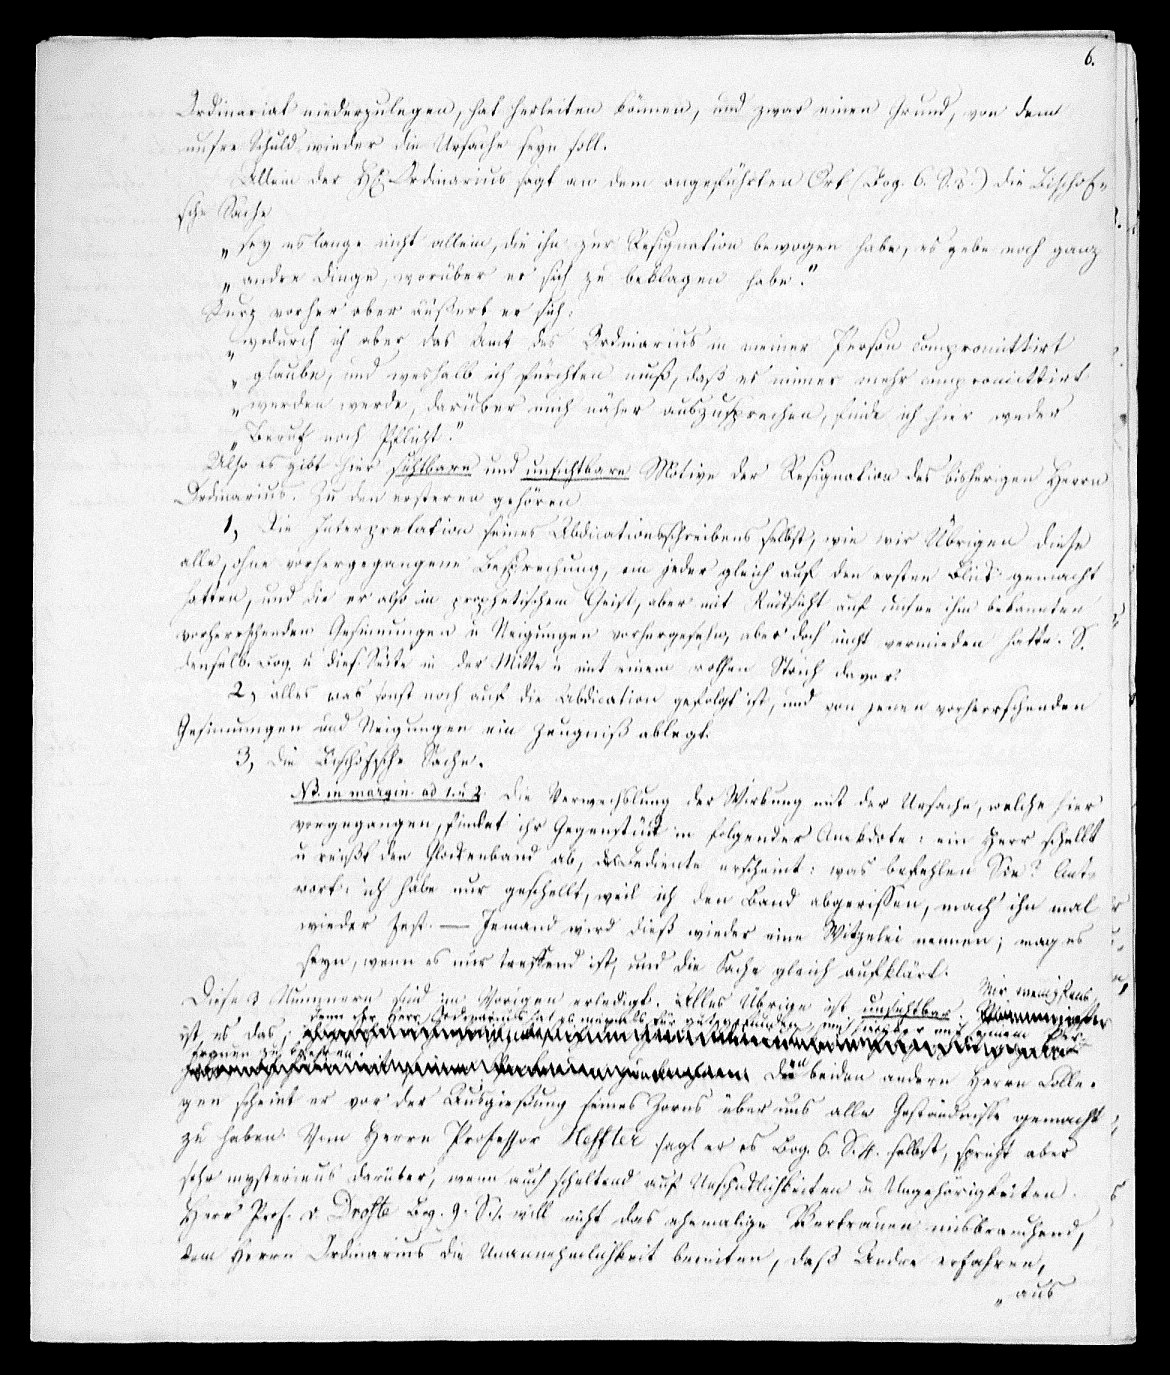 6.
Ordinariat niederzulegen, hat herleiten können, und zwar einen Grund, von dem
unsre Schuld wieder die Ursache seyn soll.
Allein der H. Ordinarius sagt an dem angeführten Ort (Bog. 6. S. 3.) die Bischof-
sche Sache
„sey es lange nicht allein, die ihn zur Resignation bewogen habe, es gebe noch ganz
„andre Dinge, worüber er sich zu beklagen habe."
Kurz vorher aber äußert er sich:
„wodurch ich aber das Amt des Ordinarius in meiner Person compromittirt
„glaube, und weshalb ich fürchten muß, daß es immer mehr compromittirt
„werden werde, darüber mich näher auszusprechen, finde ich hier weder
„Beruf noch Pflicht."
Also es gibt hier sichtbare und unsichtbare Motive der Resignation des bisherigen Herrn
Ordinarius. Zu den ersteren gehören
1, Die Interpretation seines Abdicationsschreibens selbst, wie wir Übrigen diese
alle, ohne vorhergegangene Besprechung, ein jeder gleich auf den ersten Blick gemacht
hatten, und die er also im prophetischem Geist, aber mit Rücksicht auf unsre ihm bekannten
vorherrschenden Gesinnungen u Neigungen vorhergesehn, aber doch nicht vermieden hatte. S.
denselb. Bog. u dies. Seite in der Mitte u mit einem rothen Strich davor.
2, alles was sonst noch auf die Abdication gefolgt ist, und von jenen vorherrschenden
Gesinnungen und Neigungen ein Zeugniß ablegt.
3, Die Bischofsche Sache.
NB. in margin. ad 1. u 2 Die Verwechslung der Wirkung mit der Ursache, welche hier
vorgegangen, findet ihr Gegenstück in folgender Anekdote: ein Herr schellt
u reißt den Glockenband ab, der Bediente erscheint: was befehlen Sie? Ant-
wort: ich habe nur geschellt, weil ich den Band abgerissen, mach' ihn mal
wieder fest. — Jemand wird dieß wieder eine Witzelei nennen; mag es
seyn, wenn es nur treffend ist, und die Sache gleich aufklärt.
Diese 3 Nummern sind im Vorigen erledigt. Alles Übrige ist unsichtbar. Mir wenigstens
ist es das, denn der Herr Ordinarius hat es niemals für gut gefunden, mich hierüber mit seinem Ver-
trauen zu beehren. Den beiden andern Herrn Colle-
gen scheint er vor der Ausgießung seines Zorns über uns alle Geständnisse gemacht
zu haben. Vom Herrn Professor Heffter sagt er es Bog. 6. S. 4. selbst, spricht aber
sehr mysterieus darüber, wenn auch scheltend auf Unschicklichkeiten u Ungehörigkeiten.
Herr Prof. v. Droste Bog. 9. S. 1. will nicht das ehemalige Vertrauen misbrauchend,
dem Herrn Ordinarius die Unannehmlichkeit bereiten, daß Andre erfahren,
„aus